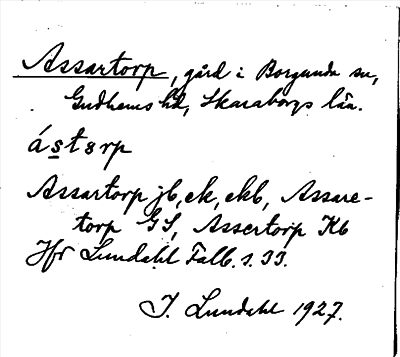 Assartorp, gård i Borgunda sn,
Gudhems hd, Skaraborgs län.
ástɘrp
Assartorp jb, ek, ekb, Assare-
torp GS, Assertorp Kb
Jfr Lundahl Falb. s. 33.
I. Lundahl 1927.